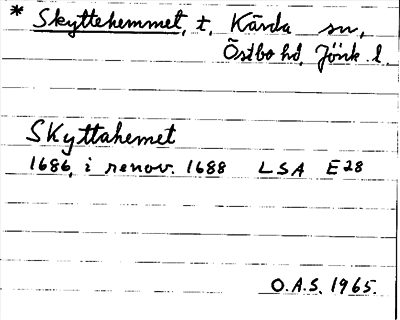 * Skyttehemmet, t. Kärda sn,
Östbo hd, Jönk. l.
Skyttahemet
1686, i renov. 1688 LSA E28
O.A.S. 1965.